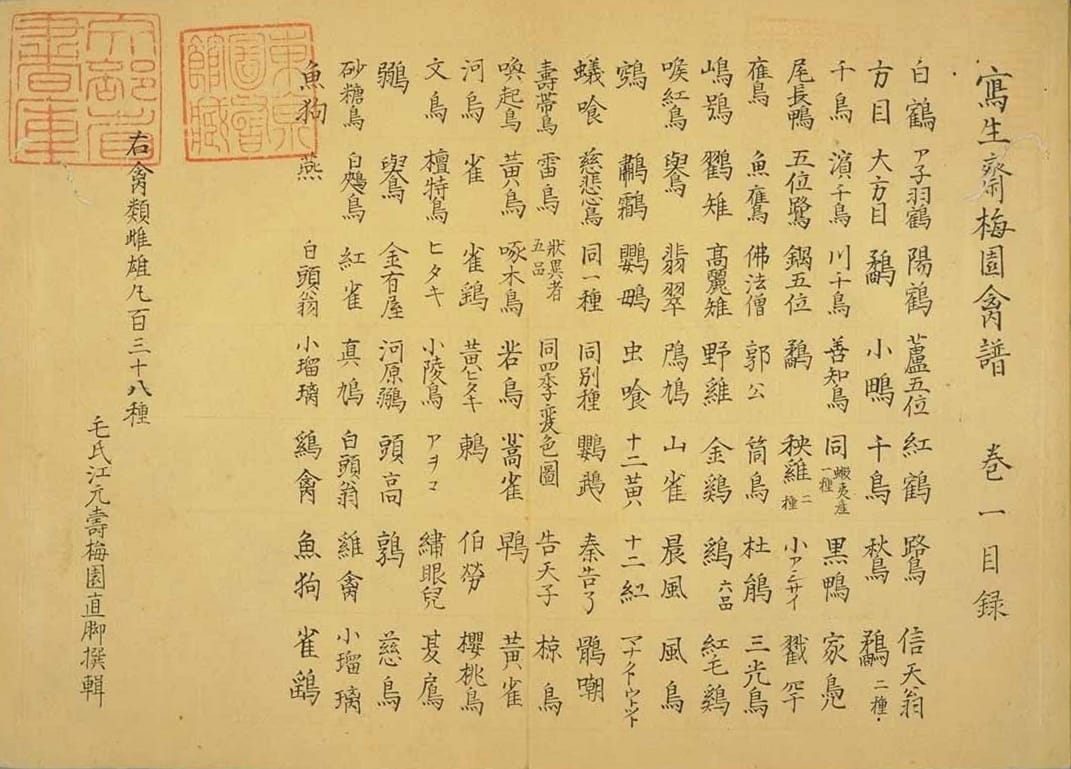 寫生齋梅園禽譜 巻一目録
白鶴 ア子羽鶴 陽鶴 蘆五位 紅鶴 路鳥 信天翁
方目 大方目 鷸 小鴫 千鳥 秋鳥 鷸二種
千鳥 濱千鳥 川千鳥 善知鳥 同蝦夷産一種 黒鴨 家鳧
尾長鴨 五位鷺 鍋五位 鷸 秧雞二種 小アシサイ
雁鳥 魚鷹 佛法僧 郭公 筒鳥 杜鵑 三光鳥
嶋鴞 鸐雉 高麗雉 野雞 金鷄 鷄六品 紅毛鷄
喉紅鳥 鸒 翡翠 鴈鳩 山雀 晨風 風鳥
鶚 鸕鷀 鸚鵡 虫喰 十二黄 十二紅
蟻喰 慈悲心鳥 同一種 同別種 鸚鵡 秦吉了 鶻嘲
壽帯鳥 雷鳥 状異者五品 同四季変色圖 告天子 椋鳥
喚起鳥 黄鳥 啄木鳥 岩鳥 蒿雀 鵯 黄雀
河烏 雀 雀鷂 黄ヒタキ 鶫 伯勞 櫻桃鳥
文鳥 檀特鳥 ヒタキ 小陵鳥 アヲコ 繡眼兒
鶸 鸒 金有屋 河原鶸 頭高 鶉 慈鳥
砂糖鳥 白鴉鳥 紅雀 真鳩 白頭翁 雞禽 小瑠璃
魚狗 燕 白頭翁 小瑠璃 鷄禽 魚狗 雀鷂
右禽類雌雄凡百三十八種
毛氏江元壽梅園直脚撰輯
東京圖書館蔵